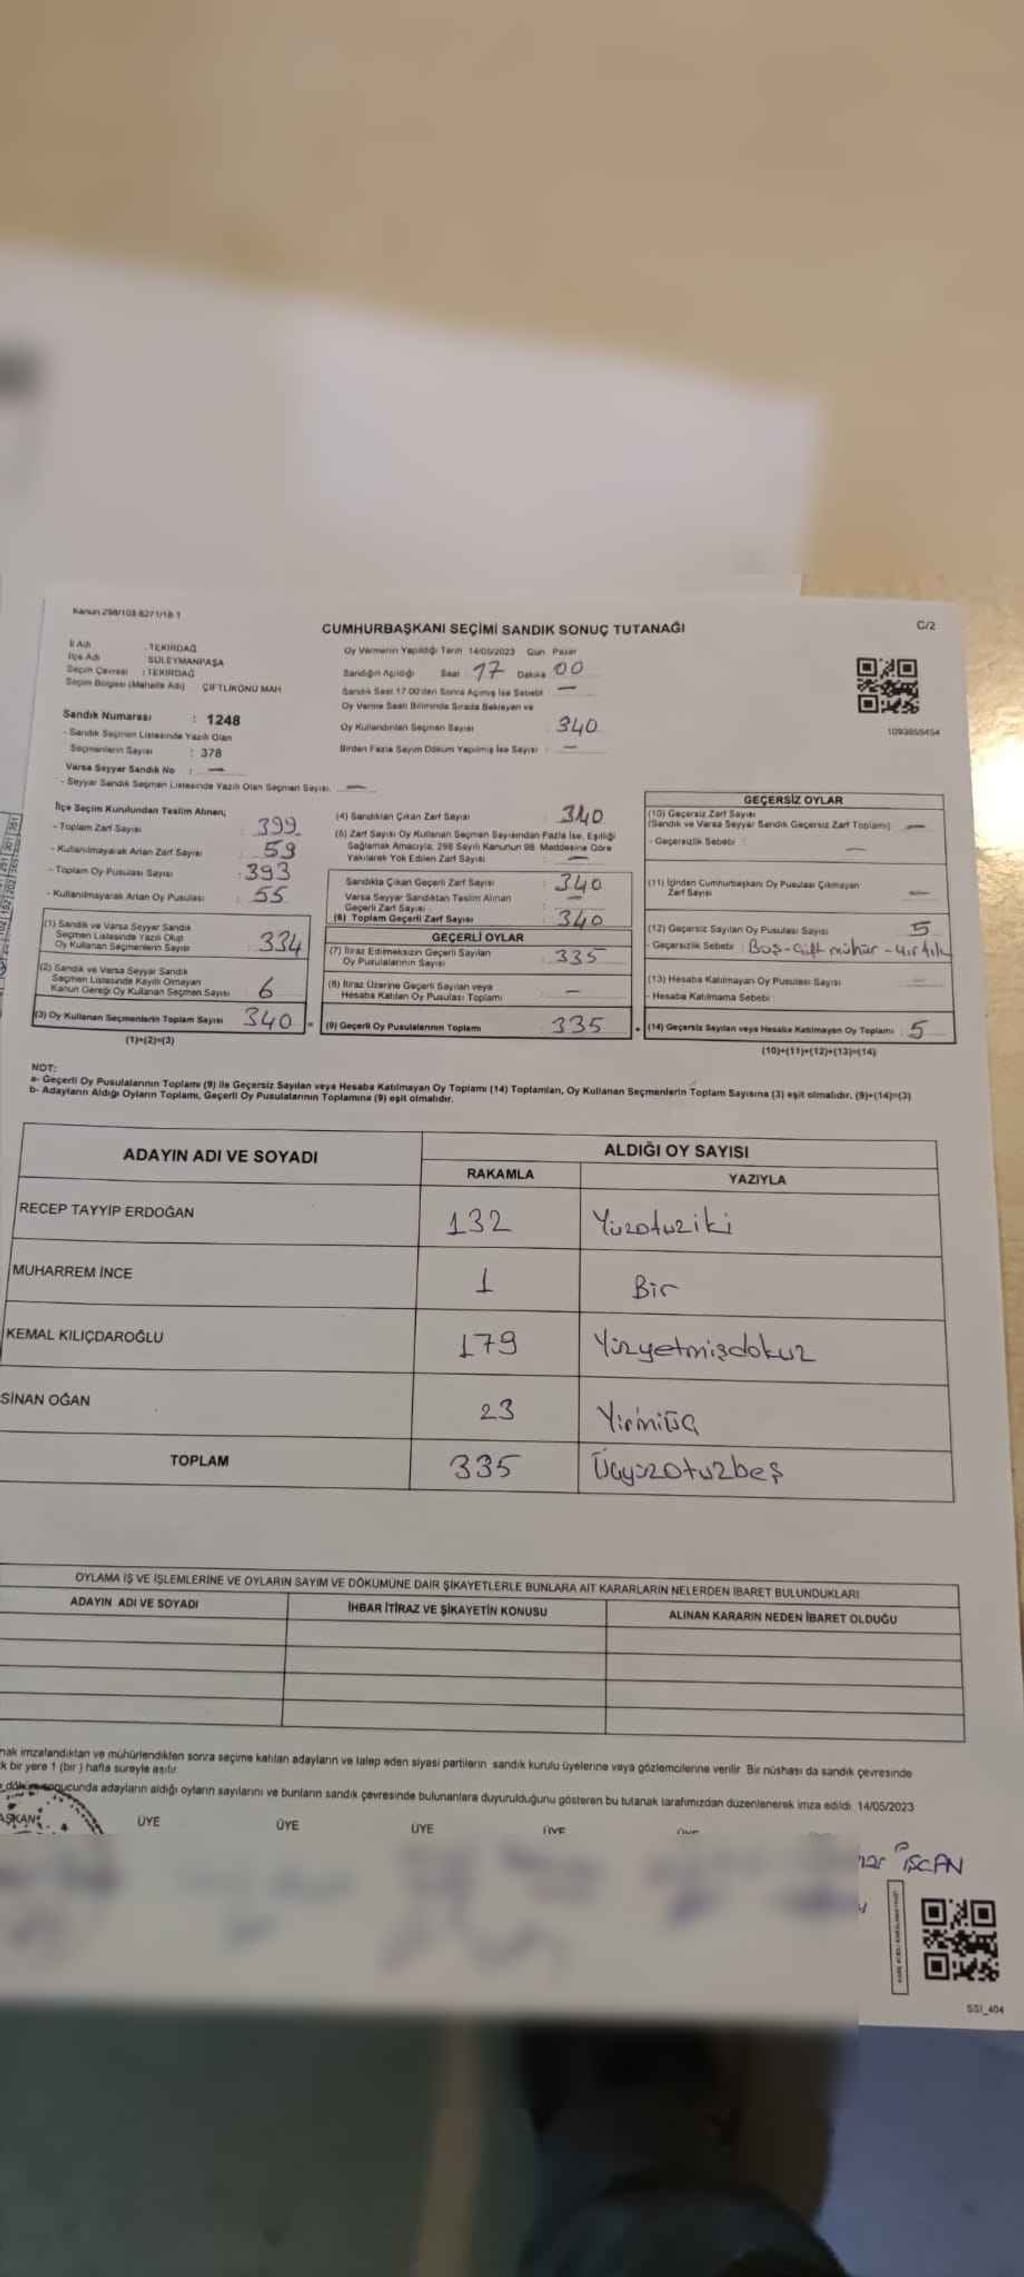 Kanun 298/103-6271/18-1
CUMHURBAŞKANI SEÇİMİ SANDIK SONUÇ TUTANAĞI
C/2
İl Adı : TEKİRDAĞ
İlçe Adı : SÜLEYMANPAŞA
Seçim Çevresi : TEKİRDAĞ
Seçim Bölgesi (Mahalle Adı) ÇİFTLİKÖNÜ MAH
Sandık Numarası : 1248
- Sandık Seçmen Listesinde Yazılı Olan
Seçmenlerin Sayısı : 378
Varsa Seyyar Sandık No : —
- Seyyar Sandık Seçmen Listesinde Yazılı Olan Seçmen Sayısı. —
Oy Vermenin Yapıldığı Tarih 14/05/2023 Gün Pazar
Sandığın Açıldığı Saat 17 Dakika 00
Sandık Saat 17.00'den Sonra Açılmış İse Sebebi —
Oy Verme Saati Bitiminde Sırada Bekleyen ve
Oy Kullandırılan Seçmen Sayısı 340
Birden Fazla Sayım Döküm Yapılmış İse Sayısı : —
1093855454
İlçe Seçim Kurulundan Teslim Alınan;
- Toplam Zarf Sayısı : 399
- Kullanılmayarak Artan Zarf Sayısı 59
- Toplam Oy Pusulası Sayısı : 393
- Kullanılmayarak Artan Oy Pusulası : 55
(1) Sandık ve Varsa Seyyar Sandık
Seçmen Listesinde Yazılı Olup
Oy Kullanan Seçmenlerin Sayısı 334
(2) Sandık ve Varsa Seyyar Sandık
Seçmen Listesinde Kayıtlı Olmayan
Kanun Gereği Oy Kullanan Seçmen Sayısı 6
(3) Oy Kullanan Seçmenlerin Toplam Sayısı 340 =
(1)+(2)=(3)
(4) Sandıktan Çıkan Zarf Sayısı 340
(5) Zarf Sayısı Oy Kullanan Seçmen Sayısından Fazla İse, Eşitliği
Sağlamak Amacıyla, 298 Sayılı Kanunun 98. Maddesine Göre
Yakılarak Yok Edilen Zarf Sayısı : —
Sandıkta Çıkan Geçerli Zarf Sayısı : 340
Varsa Seyyar Sandıktan Teslim Alınan
Geçerli Zarf Sayısı : —
(6) Toplam Geçerli Zarf Sayısı : 340
GEÇERLİ OYLAR
(7) İtiraz Edilmeksizin Geçerli Sayılan
Oy Pusulalarının Sayısı : 335
(8) İtiraz Üzerine Geçerli Sayılan veya
Hesaba Katılan Oy Pusulası Toplamı —
(9) Geçerli Oy Pusulalarının Toplamı 335 +
GEÇERSİZ OYLAR
(10) Geçersiz Zarf Sayısı
(Sandık ve Varsa Seyyar Sandık Geçersiz Zarf Toplamı) —
- Geçersizlik Sebebi : —
(11) İçinden Cumhurbaşkanı Oy Pusulası Çıkmayan
Zarf Sayısı —
(12) Geçersiz Sayılan Oy Pusulası Sayısı 5
- Geçersizlik Sebebi : Boş-Çift mühür - Yırtık
(13) Hesaba Katılmayan Oy Pusulası Sayısı —
- Hesaba Katılmama Sebebi
(14) Geçersiz Sayılan veya Hesaba Katılmayan Oy Toplamı : 5
(10)+(11)+(12)+(13)=(14)
NOT:
a- Geçerli Oy Pusulalarının Toplamı (9) ile Geçersiz Sayılan veya Hesaba Katılmayan Oy Toplamı (14) Toplamları, Oy Kullanan Seçmenlerin Toplam Sayısına (3) eşit olmalıdır. (9)+(14)=(3)
b- Adayların Aldığı Oyların Toplamı, Geçerli Oy Pusulalarının Toplamına (9) eşit olmalıdır.
ADAYIN ADI VE SOYADI
ALDIĞI OY SAYISI
RAKAMLA YAZIYLA
RECEP TAYYİP ERDOĞAN 132 Yüzotuziki
MUHARREM İNCE 1 Bir
KEMAL KILIÇDAROĞLU 179 Yüzyetmişdokuz
SİNAN OĞAN 23 Yirmiüç
TOPLAM 335 Üçyüzotuzbeş
OYLAMA İŞ VE İŞLEMLERİNE VE OYLARIN SAYIM VE DÖKÜMÜNE DAİR ŞİKAYETLERLE BUNLARA AİT KARARLARIN NELERDEN İBARET BULUNDUKLARI
ADAYIN ADI VE SOYADI İHBAR İTİRAZ VE ŞİKAYETİN KONUSU ALINAN KARARIN NEDEN İBARET OLDUĞU
nak imzalandıktan ve mühürlendikten sonra seçime katılan adayların ve talep eden siyasi partilerin sandık kurulu üyelerine veya gözlemcilerine verilir. Bir nüshası da sandık çevresinde
k bir yere 1 (bir) hafta süreyle asılır.
döküm sonucunda adayların aldığı oyların sayılarını ve bunların sandık çevresinde bulunanlara duyurulduğunu gösteren bu tutanak tarafımızdan düzenlenerek imza edildi. 14/05/2023
AŞKAN ÜYE ÜYE ÜYE ÜYE
İŞCAN
SSI_404